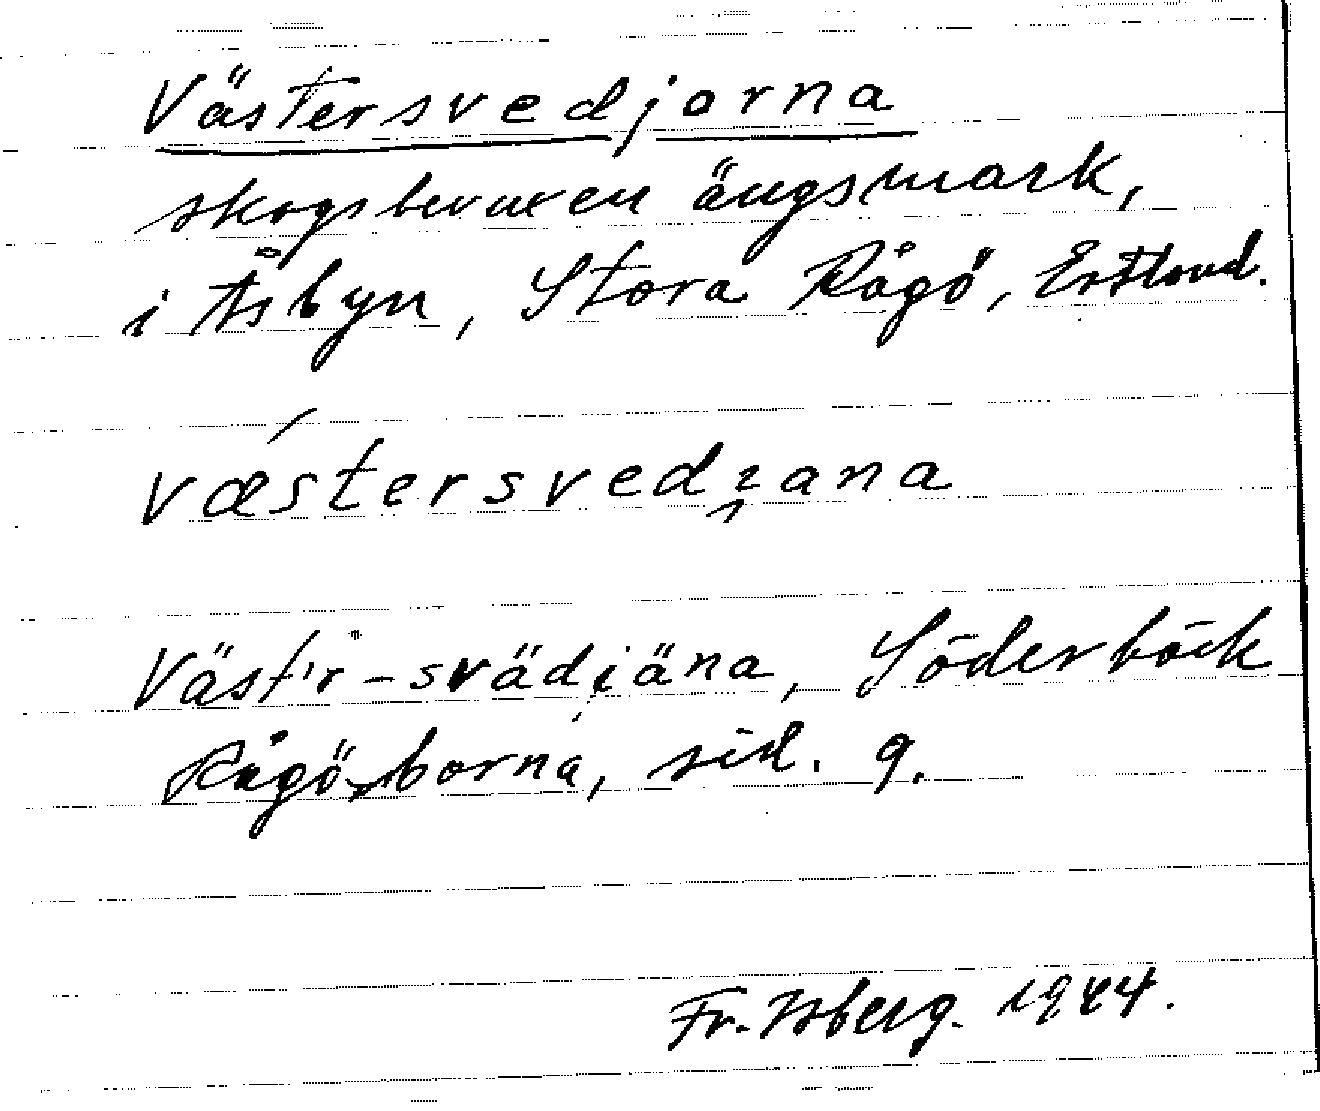 Västersvedjorna
skogsbevuxen ängsmark,
i Åsbyn, Stora Rågö, Estland.
vǽstersvedi̯ana
Väst'r-svädjäna, Söderbäck
Rågöborna, sid. 9.
Fr. Isberg. 1944.